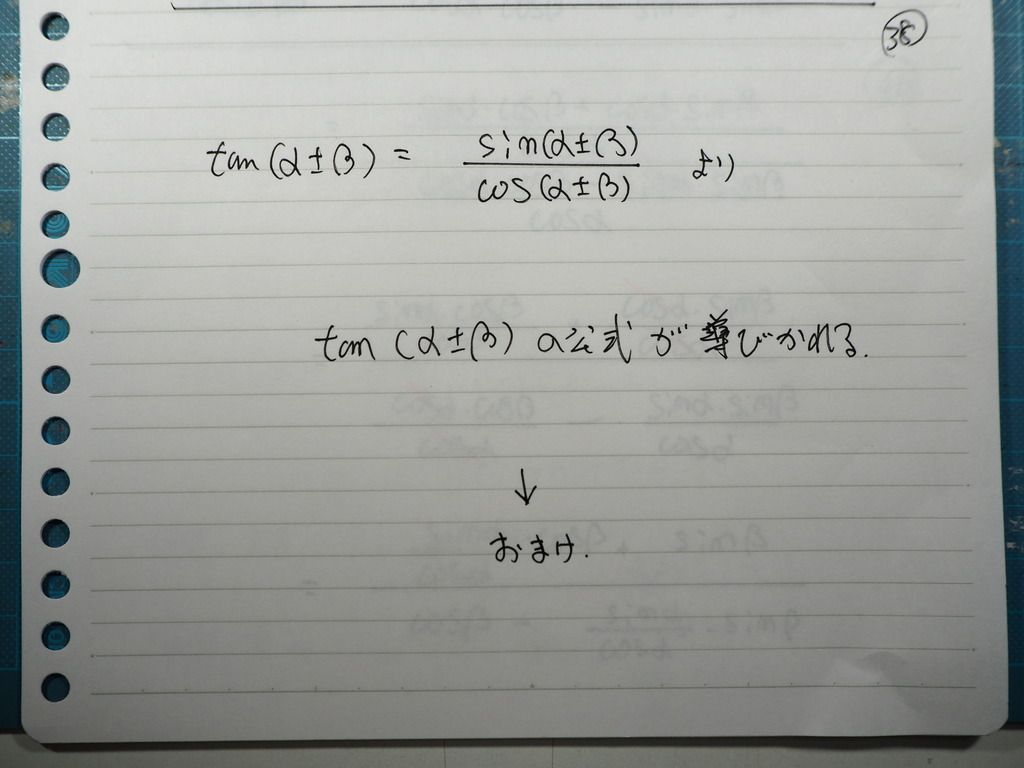 38
tan(α±β) = sin(α±β) / cos(α±β) より
tan(α±β) の公式が導びかれる.
↓
おまけ.